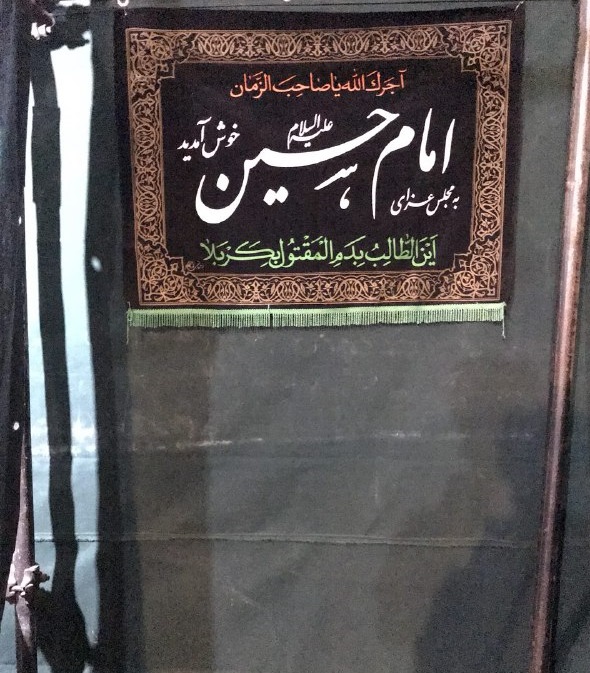 آجرك الله يا صاحب الزمان
به مجلس عزای امام حسین علیه السلام خوش آمدید
أين الطالب بدم المقتول بكربلا